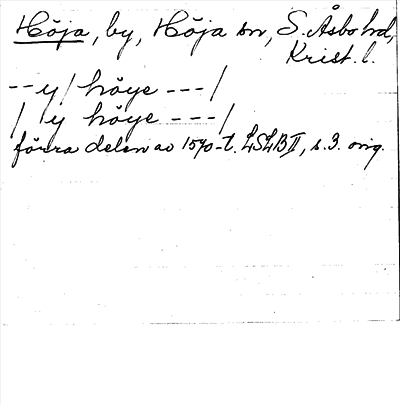 Höja, by, Höja sn, S. Åsbo hd,
Krist. l.
-- y / höye --- /
/ y höye --- /
förra delen av 1570-t. LSLB II, s. 3. orig.